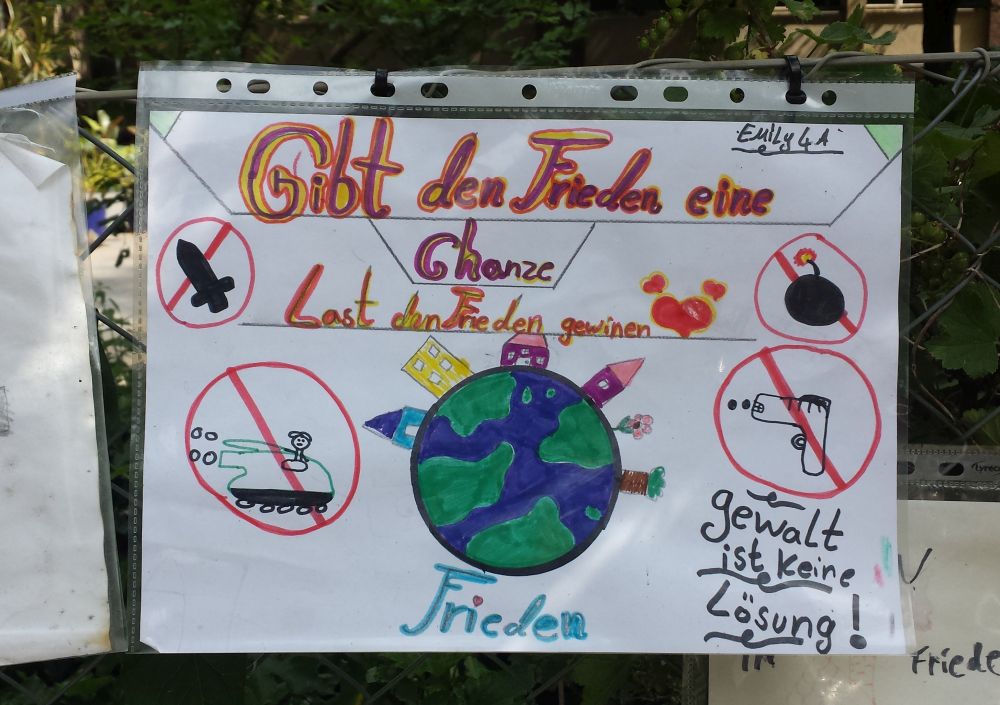 Emily 4A
Gibt den Frieden eine
Chanze
Last den Frieden gewinen
Frieden
gewalt
ist keine
Lösung!
Friede